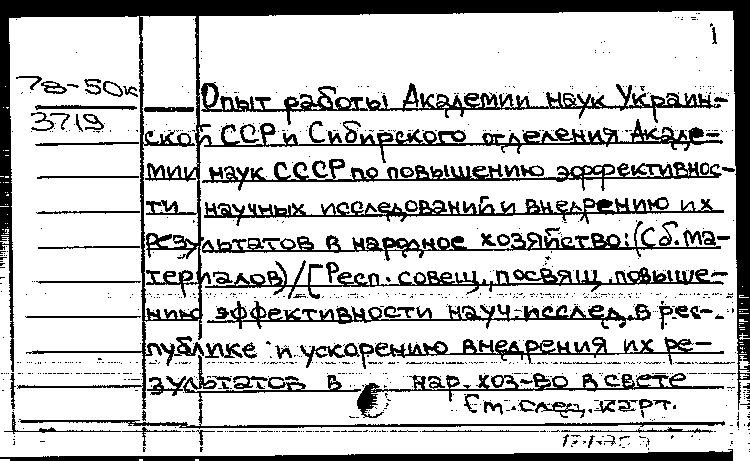 1
78-50к
3719
Опыт работы Академии наук Украин-
ской ССР и Сибирского отделения Акаде-
мии наук СССР по повышению эффективнос-
ти научных исследований и внедрению их
результатов в народное хозяйство: (Сб. ма-
териалов) / [Респ. совещ., посвящ. повыше-
нию эффективности науч. исслед. в рес-
публике и ускорению внедрения их ре-
зультатов в нар. хоз-во в свете
См. след. карт.